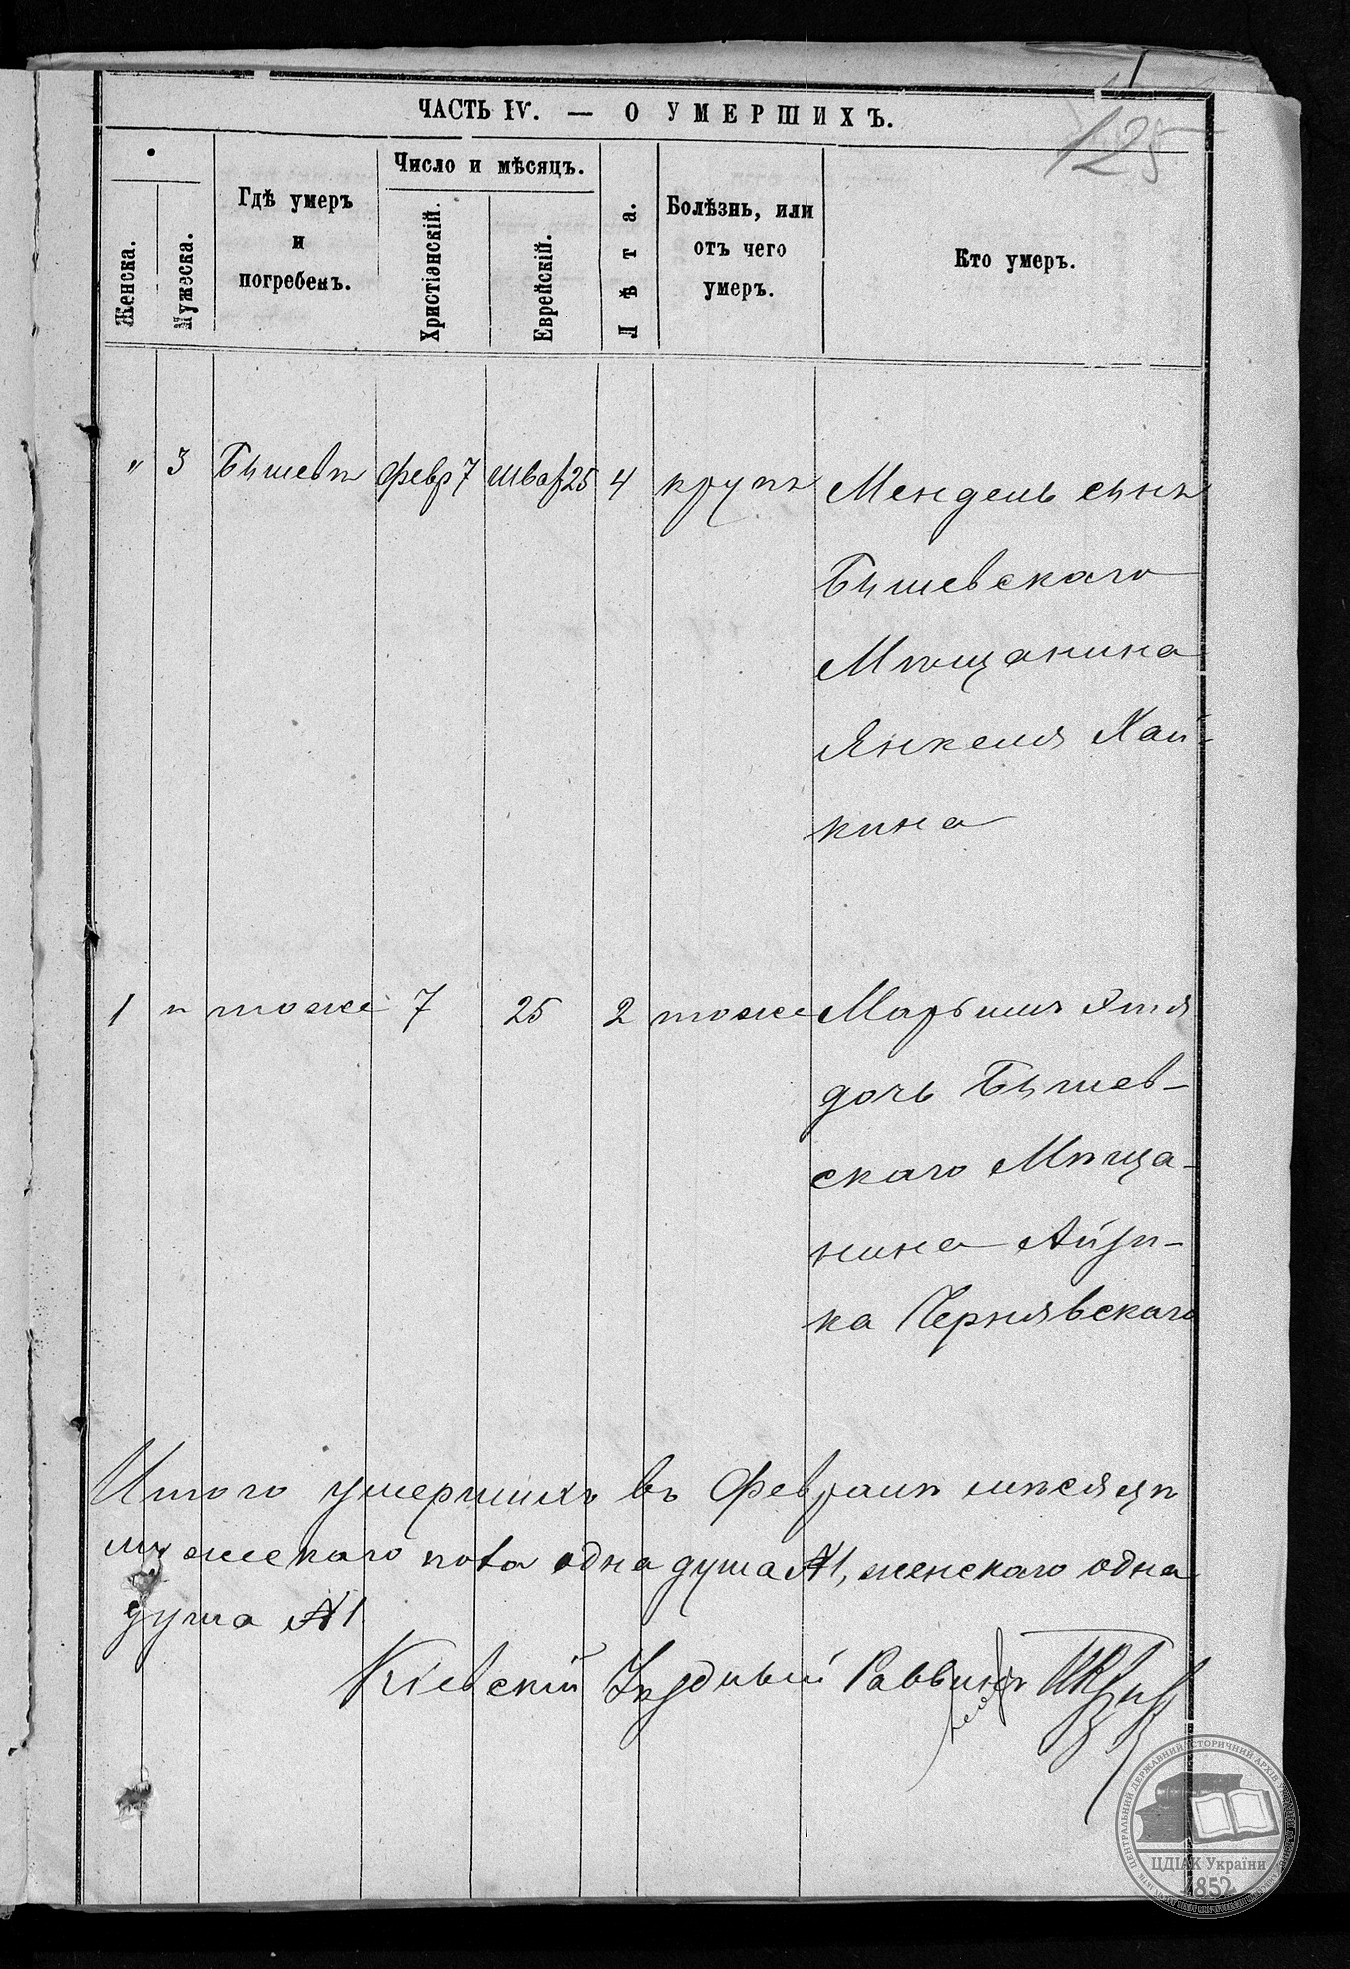 125
ЧАСТЬ IV. — О УМЕРШИХЪ.
Женска.
Мужеска.
Гдѣ умеръ
и
погребенъ.
Число и мѣсяцъ.
Христіанскій.
Еврейскій.
Лѣта.
Болѣзнь, или
отъ чего
умеръ.
Кто умеръ.
" 3 Бышевѣ февр 7 Шват 25 4 крупъ Мендель сынъ
Бышевскаго
Мѣщанина
Янкеля Хай-
кина
1 " тоже 7 25 2 тоже Марьямъ Этя
дочь Бышев-
скаго Мѣща-
нина Айзи-
ка Чернявскаго
Итого умершихъ въ Февралѣ мѣсяцѣ
мужескаго пола одна душа №1, женскаго одна
душа №1
Кіевскій Уѣздный Раввинъ
ЦЕНТРАЛЬНИЙ ДЕРЖАВНИЙ ІСТОРИЧНИЙ АРХІВ УКРАЇНИ
ЦДІАК України
1852